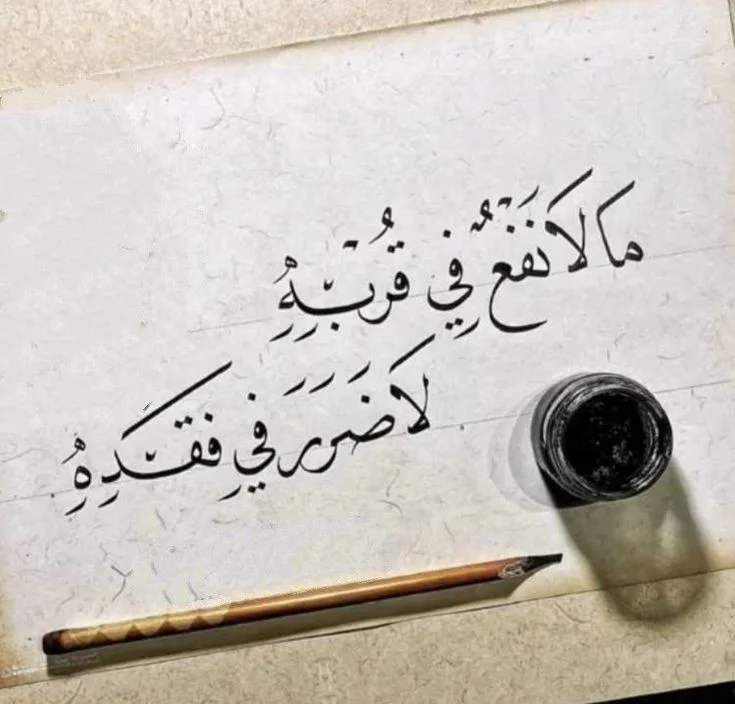 ما لَا نَفْعٌ فِي قُرْبِهِ
لَا ضَرَرَ فِي فَقْدِهِ